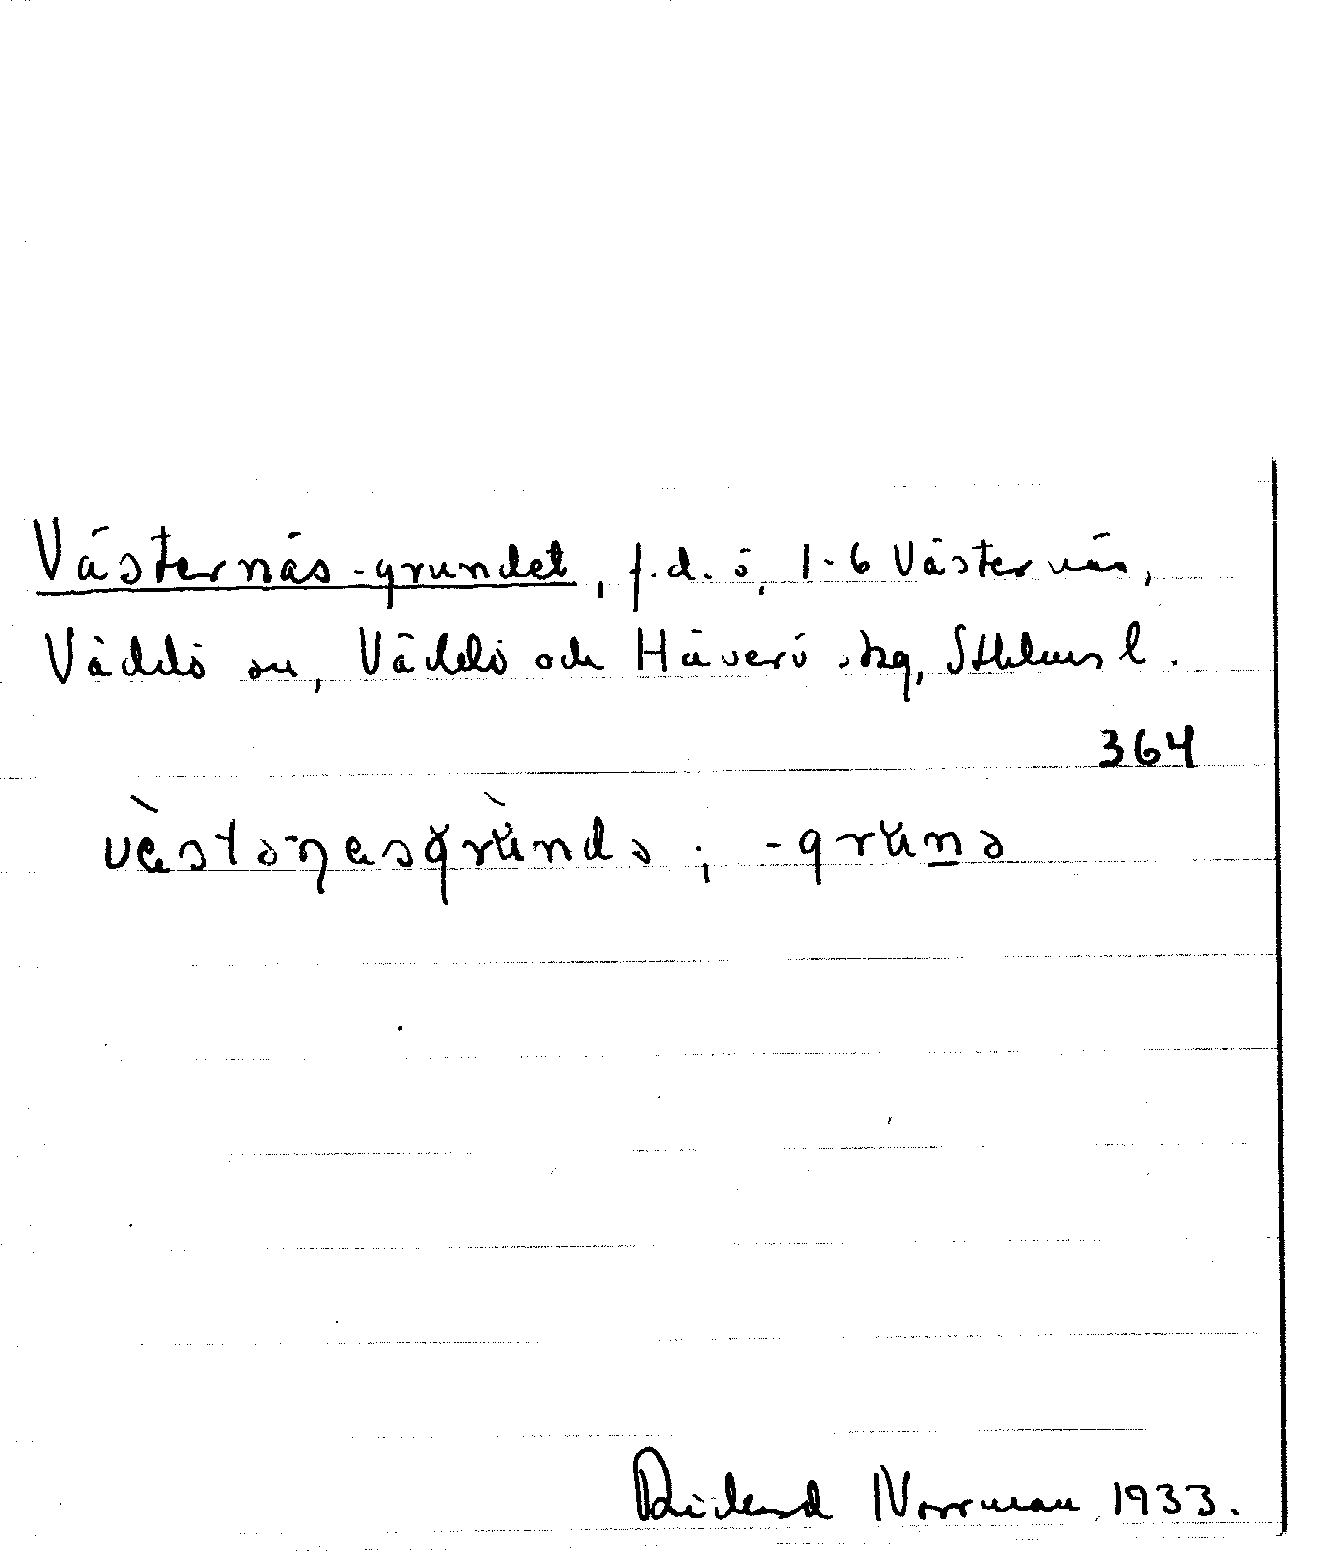 Västernäs-grundet, f.d. ö, 1-6 Västernäs,
Väddö sn, Väddö och Häverö skg, Sthlms l.
364
vɛ̀stəɳɛsgrùndə ; -grunə
Rickard Norrman 1933.